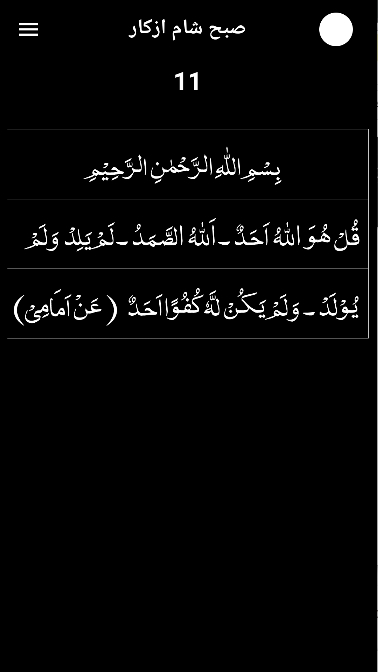 صبح شام ازکار
11
بِسْمِ اللّٰهِ الرَّحْمٰنِ الرَّحِيْمِ
قُلْ هُوَ اللّٰهُ اَحَدٌ ـ اَللّٰهُ الصَّمَدُ ـ لَمْ يَلِدْ وَلَمْ
يُوْلَدْ ـ وَلَمْ يَكُنْ لَّهٗ كُفُوًا اَحَدٌ (عَنْ اَمَامِیْ)